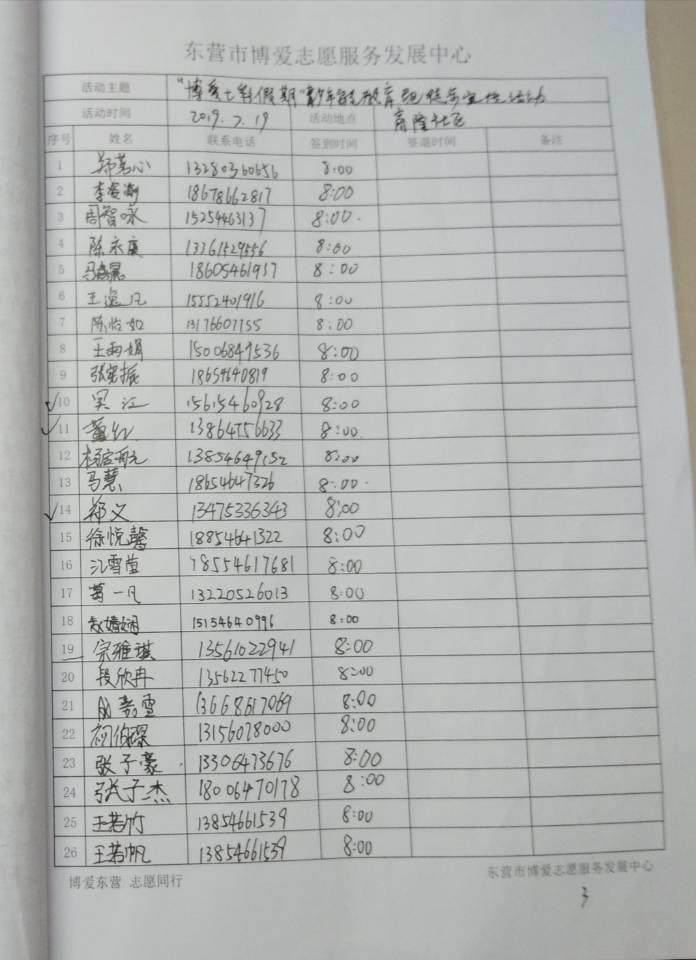 东营市博爱志愿服务发展中心
活动主题 "博爱七彩假期"青少年
活动时间 2019.7.19 活动地点 育隆社区
序号 姓名 联系电话 签到时间 签退时间 备注
1 郑茗心 13280360656 8:00
2 李 18678662817 8:00
3 周智咏 15254463137 8:00
4 陈永康 13361529556 8:00
5 马 18605461937 8:00
6 王逸凡 15552401916 8:00
7 陈怡如 13176607755 8:00
8 王雨娟 15006849536 8:00
9 张宪振 18654640819 8:00
10 吴江 15615460928 8:00
11 董红 13864756633 8:00
12 13854649152 8:00
13 马慧 18654647326 8:00
14 祁义 13475336343 8:00
15 徐悦馨 18854641322 8:00
16 江雪莹 18554617681 8:00
17 葛一凡 13220526013 8:00
18 15154640996 8:00
19 宗雅琪 13561022941 8:00
20 段欣冉 13562277450 8:00
21 13668617069 8:00
22 祁伯琛 13156078000 8:00
23 张子豪 13306473676 8:00
24 张子杰 18006470178 8:00
25 王若竹 13854661539 8:00
26 王若帆 13854661539 8:00
博爱东营 志愿同行 东营市博爱志愿服务发展中心
3